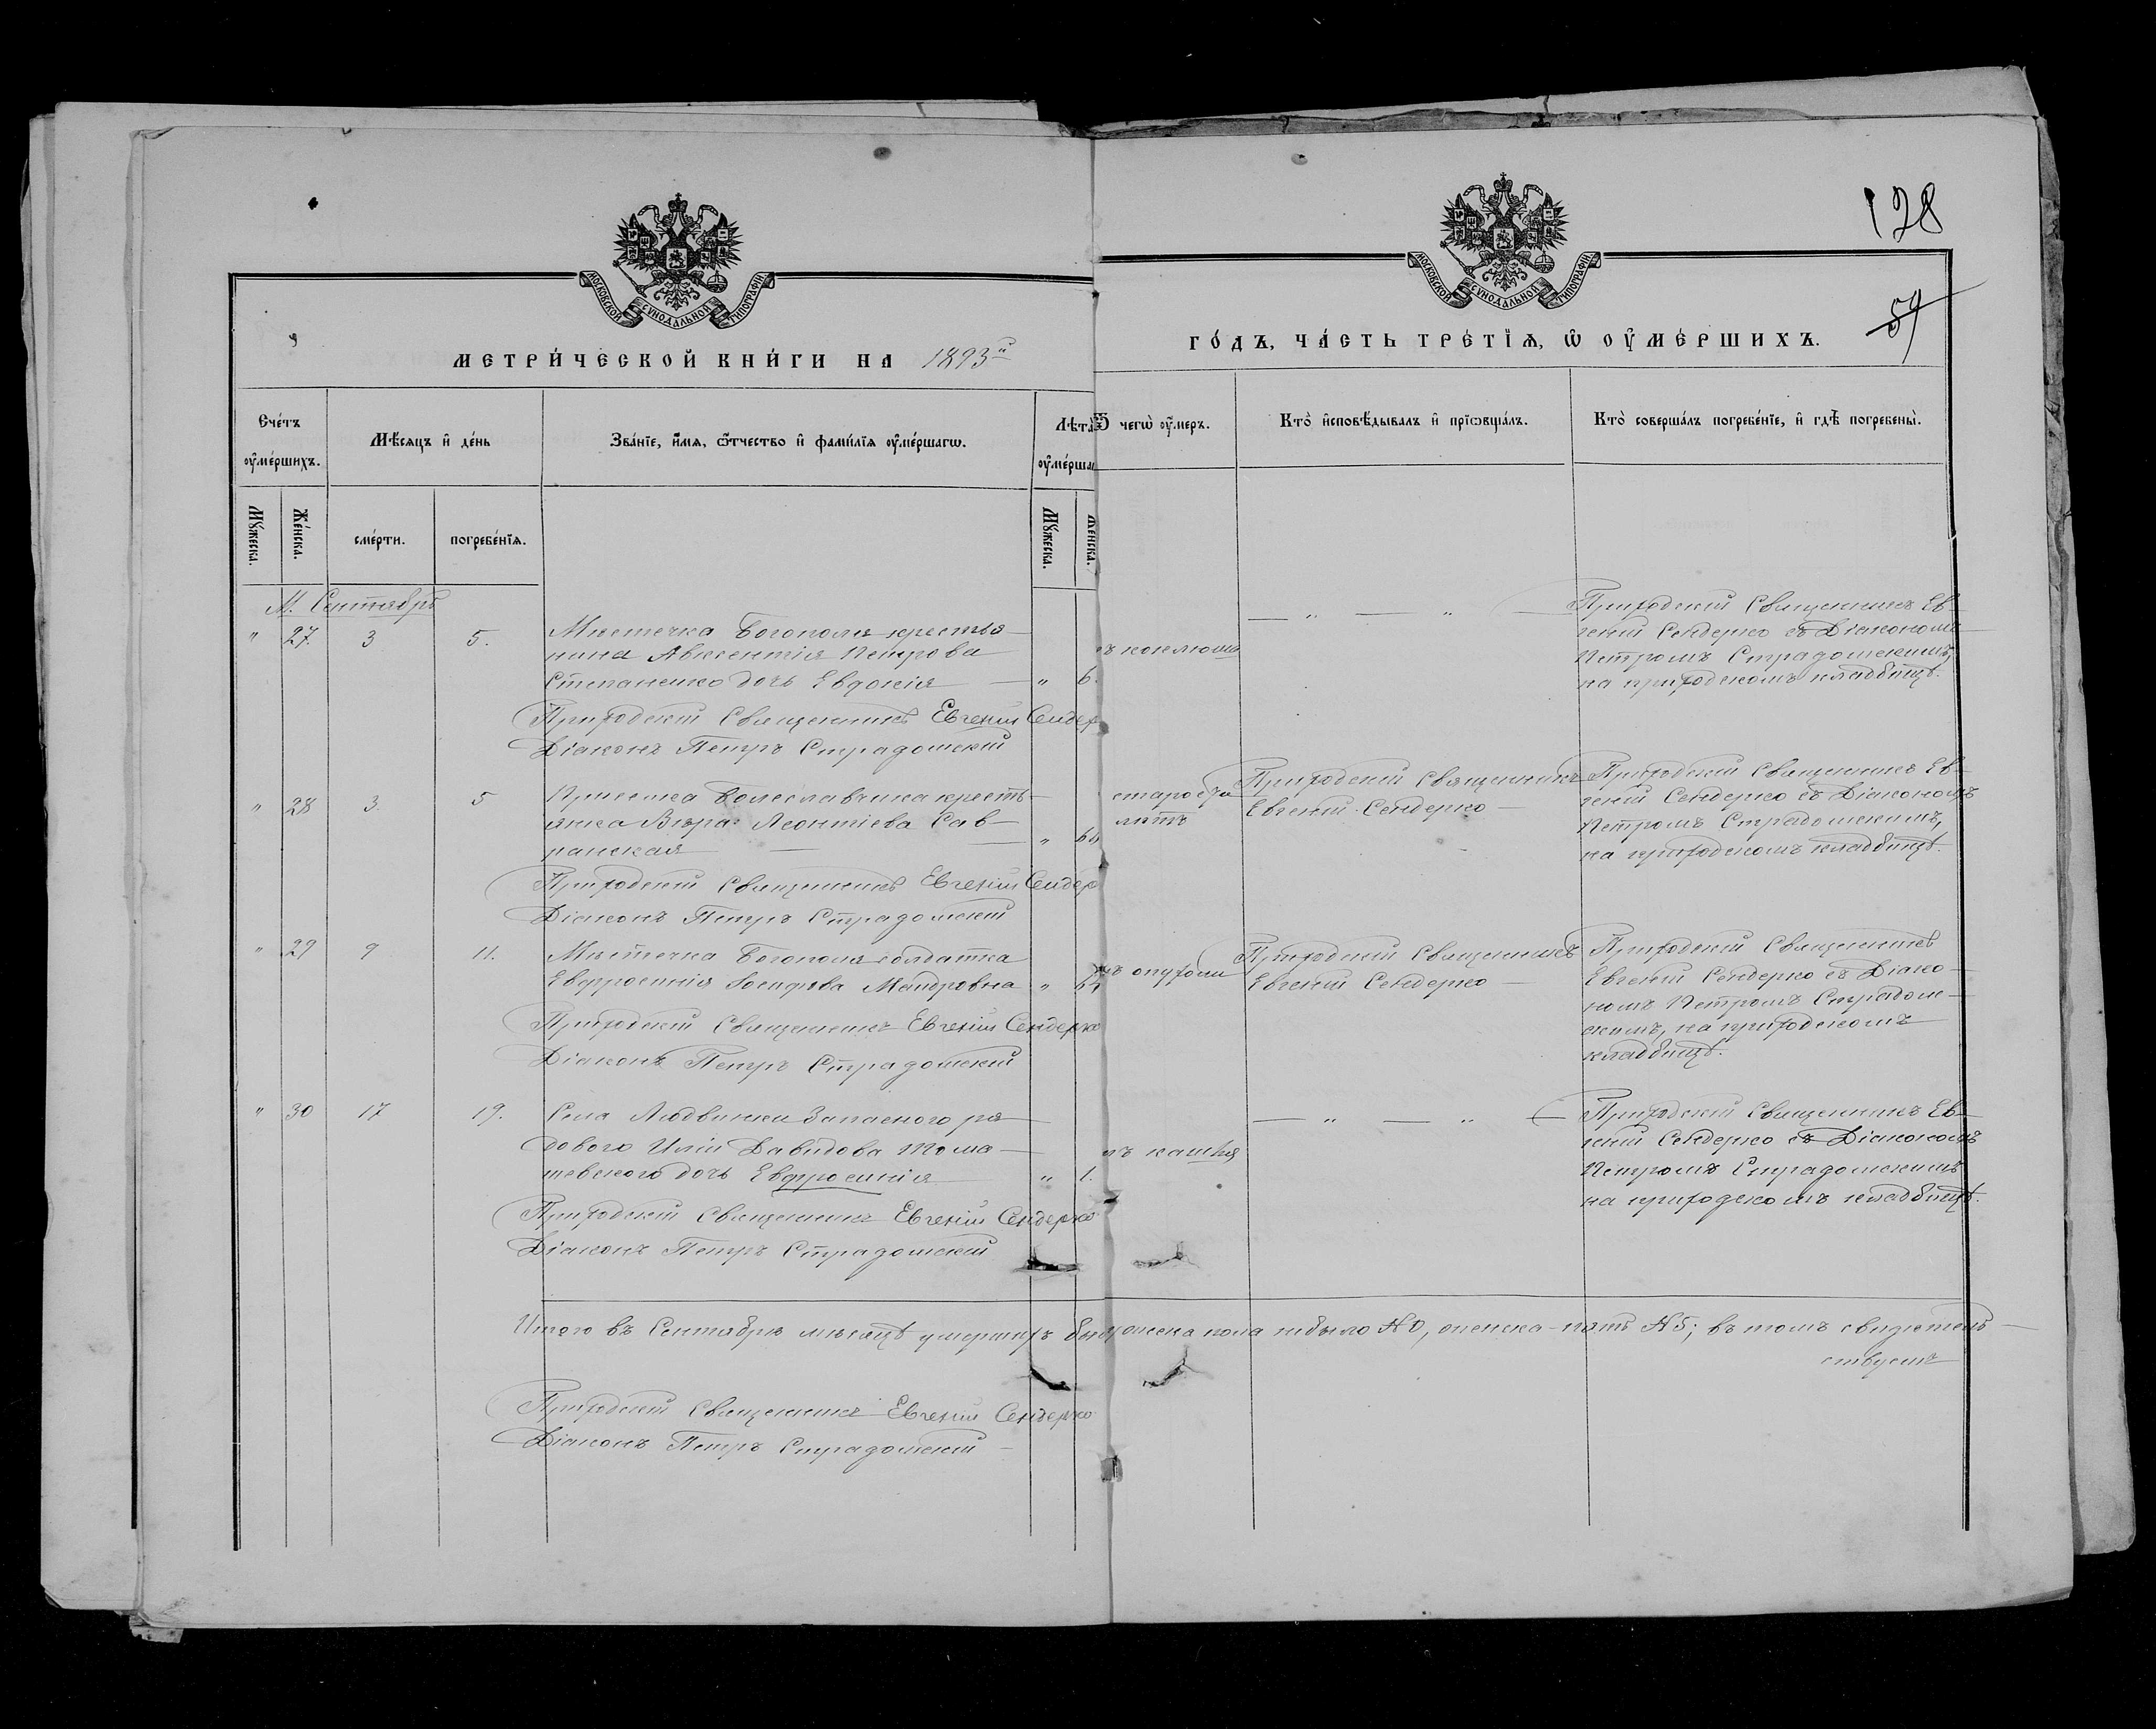 128
МОСКОВСКОЙ СУНОДАЛЬНОЙ ТИПОГРАФІИ
МОСКОВСКОЙ СУНОДАЛЬНОЙ ТИПОГРАФІИ
59
МЕТРИ́ЧЕСКОЙ КНИ́ГИ НА 1893й
ГО́ДЪ, ЧА́СТЬ ТРЕ́ТІѦ, Ѡ҆ ОУ҆МЕ́РШИХЪ.
Сче́тъ оу҆ме́ршихъ.
Мѣ́сяцъ и҆ де́нь
Зва́нїе, и҆́мѧ, ѻ҆́тчество и҆ фами́лїѧ оу҆ме́ршагѡ.
Лѣта
оу҆ме́рша
Ѿ чегѡ̀ оу҆́меръ.
Кто̀ и҆сповѣ́дывалъ и҆ прїѡбща́лъ.
Кто̀ соверша́лъ погребе́нїе, и҆ гдѣ̀ погребены̀.
Мꙋ́жеска.
Же́нска.
сме́рти.
погребе́нїѧ.
Мꙋ́жеска.
Же́нска.
М. Сентябрь
" 27. 3 5.
Мѣстечка Богополя крестья-
нина Авксентія Петрова
Степаненко дочь Евдокія — " 6.
Приходскій Священникъ Евгеній Сендер
Діаконъ Петръ Страдомскій
ъ коклюша
— " — " —
Приходскій Священникъ Ев-
геній Сендерко съ Діакономъ
Петромъ Страдомскимъ,
на приходскомъ кладбищѣ.
" 28 3. 5
Присел­ка Болеславчика кресть-
янка Вѣра Леонтіева Сав-
ранская — — "
Приходскій Священникъ Евгеній Сендер
Діаконъ Петръ Страдомскій
старости
лѣтъ
Приходскій Священникъ
Евгеній Сендерко —
Приходскій Священникъ Ев-
геній Сендерко съ Діакономъ
Петромъ Страдомскимъ,
на приходскомъ кладбищѣ.
" 29 9 11.
Мѣстечка Богополя солдатка
Евфросинія Іосифова Мандровна "
Приходскій Священникъ Евгеній Сендерко
Діаконъ Петръ Страдомскій
ъ опухоли
Приходскій Священникъ
Евгеній Сендерко —
Приходскій Священникъ
Евгеній Сендерко съ Діако-
номъ Петромъ Страдом-
скимъ, на приходскомъ
кладбищѣ.
" 30 17 19.
Села Людвинки Запасного ря-
дового Иліи Давидова Тома-
шевского дочь Евфросинія " 1.
Приходскій Священникъ Евгеній Сендерко
Діаконъ Петръ Страдомскій
ъ кашля
— " — " —
Приходскій Священникъ Ев-
геній Сендерко съ Діакономъ
Петромъ Страдомскимъ
на приходскомъ кладбищѣ.
Итого въ Сентябрѣ мѣсяцѣ умершихъ жеска пола небыло № 0, женска - пять № 5; въ томъ свидѣтель-
ствуемъ
Приходскій Священникъ Евгеній Сендерко
Діаконъ Петръ Страдомскій —